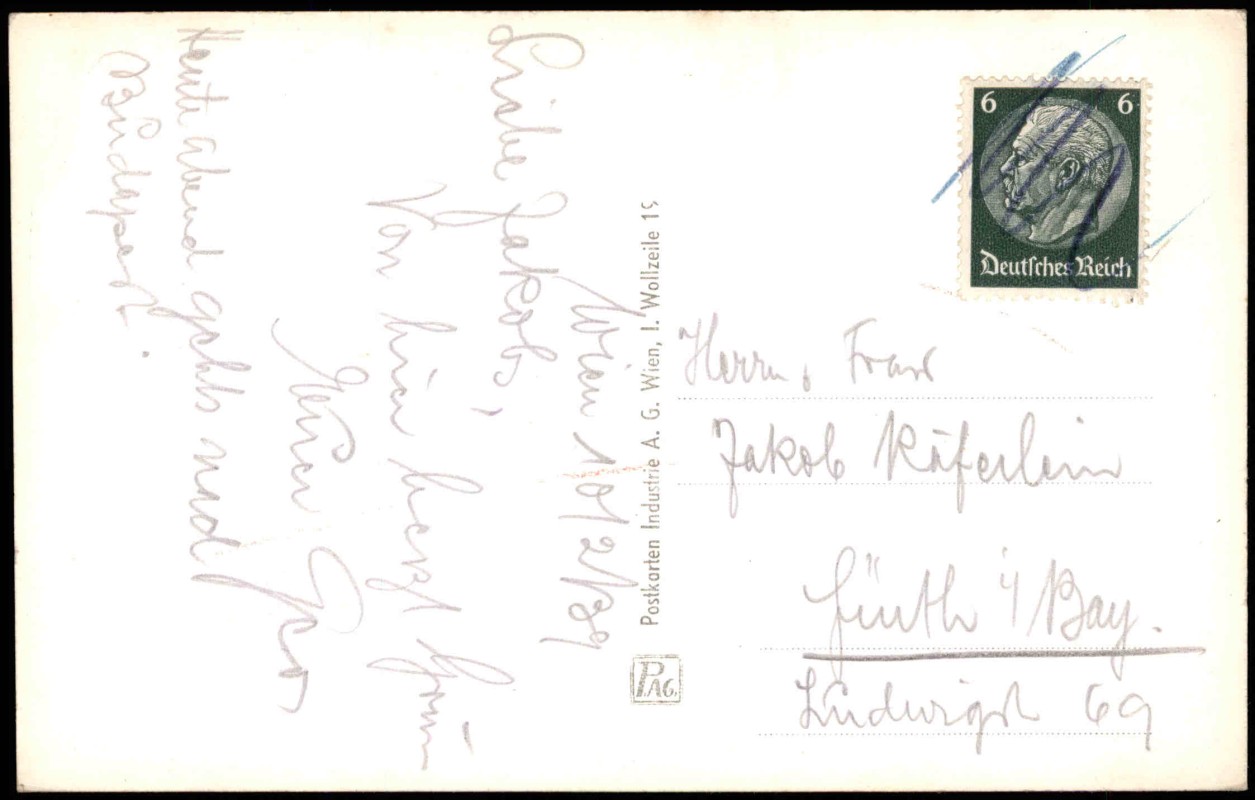 Wien 10/2/39
Liebe Jakobs,
Von hier herzl.
Euer
Heute abend gehts nach
Budapest.
Postkarten Industrie A. G. Wien, I. Wollzeile 19
PAG.
6 6
Deutsches Reich
Herrn, Frau
Jakob Käferlein
Fürth i/Bay.
Ludwigst 69